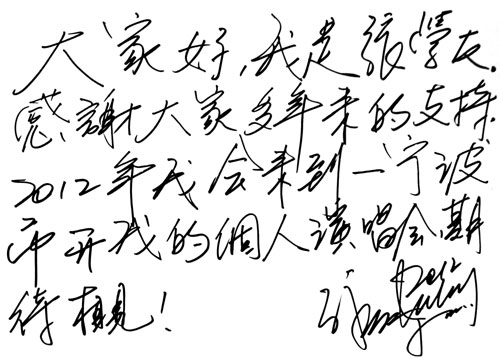 大家好,我是張學友.
感謝大家多年来的支持.
2012年我会来到一宁波
市开我的個人演唱会期
待相見!